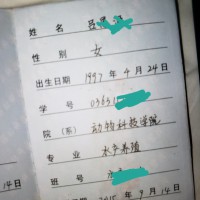 姓 名 吕
性 别 女
出生日期 1997 年 4 月 24 日
学 号 03851
院 (系) 动物科技学院
专 业 水产养殖
班 号 水
14 日 2015 年 9 月 14 日